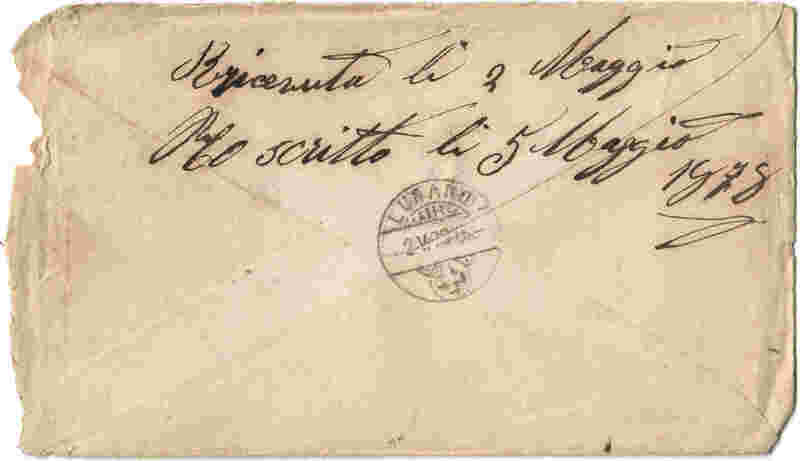 Ricevuta li 2 Maggio
Ho scritto li 5 Maggio
1878
LUGANO